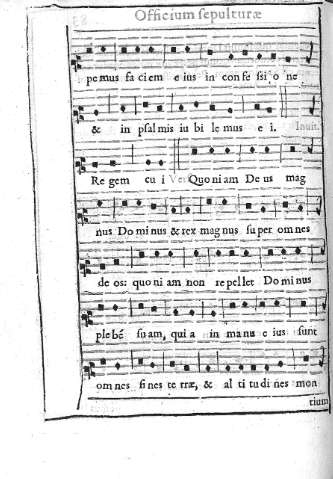 Officium sepulturæ
pe mus fa ci em e ius in con fe ssi o ne
& in psal mis iu bi le mus e i. Inuit.
Re gem cu i Ver Quo ni am De us mag
nus Do mi nus & rex mag nus su per om nes
de os: quo ni am non re pel let Do mi nus
plebẽ su am, qui a in ma nu e ius sunt
om nes fi nes te rræ, & al ti tu di nes mon
tium